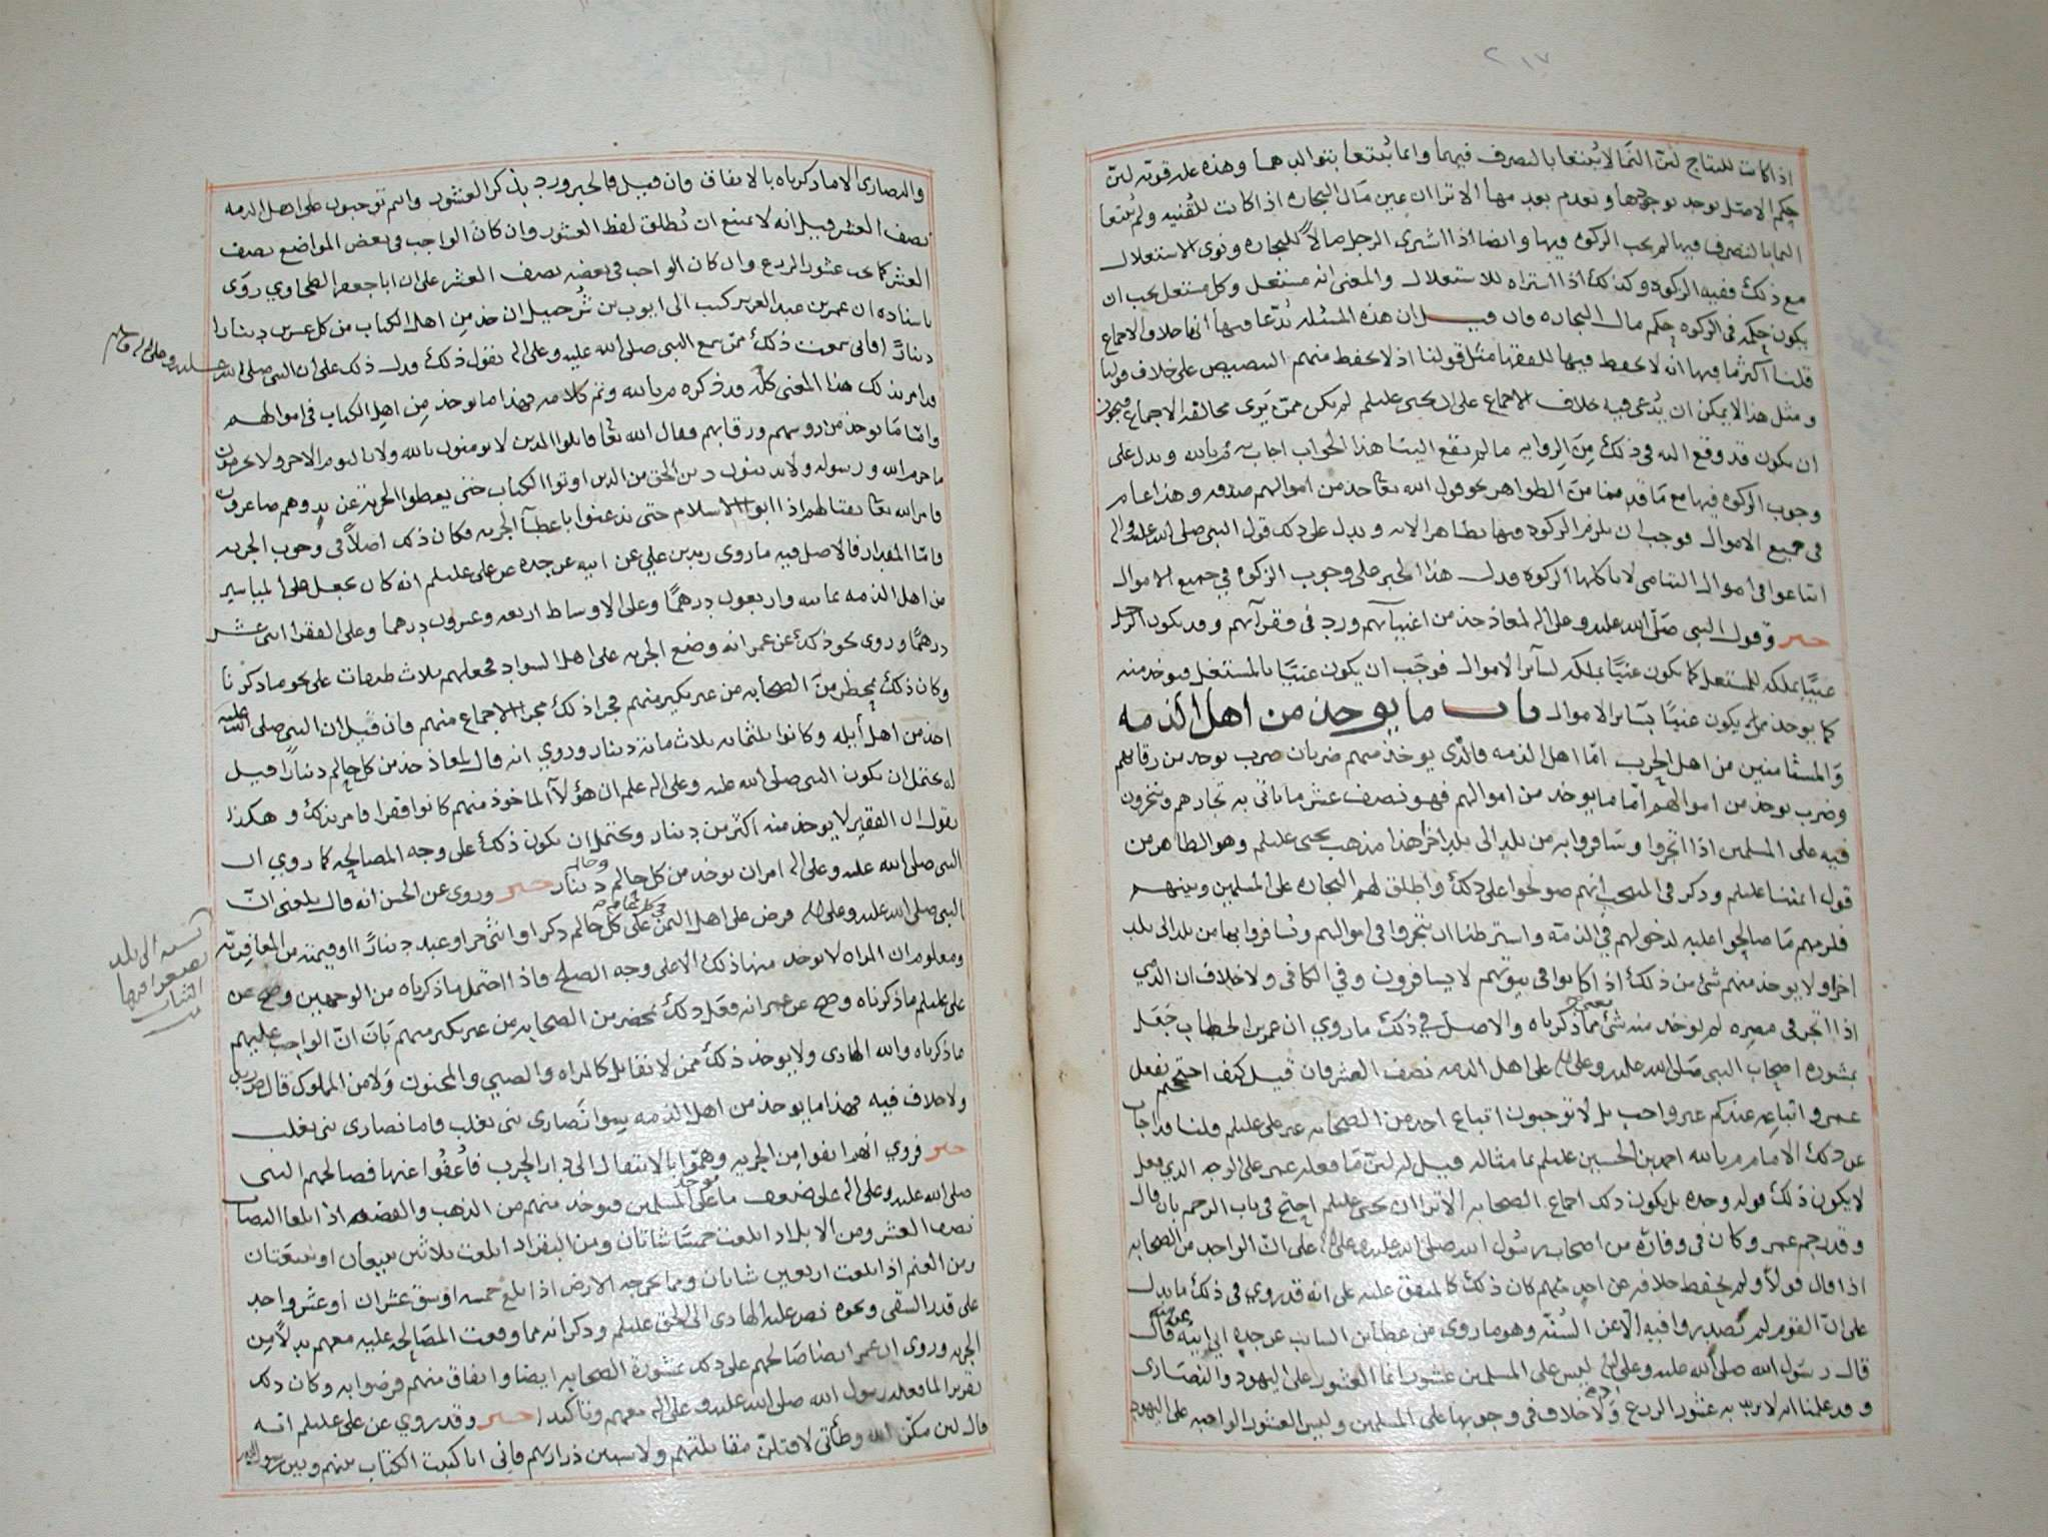 ٢١٧
اذا كانت للنتاج لئن النما لا يبتغا بالتصرف فيهما وانما يبتغا بتوالدهما وهذه علة قوية لئن
حكم الاصل يوجد بوجودها ويعدم بعدمها الا ترا ان عين مال التجاره اذا كانت للقنيه ولم يبتغا
النما بالتصرف فيها لم يجب الزكوة فيها وايضا اذا اشترى الرجل مالا للتجارة ونوى الاستغلال
مع ذلك ففيه الزكوة وكذلك اذا اشتراه للاستغلال والمعنى انه مستغل وكل مستغل يجب ان
يكون حكمه في الزكوه حكم مال التجاره فان قيل ان هذه المسئلة يدعا فيها انها خلاف الاجماع
قلنا اكثر ما فيها انه لا يحفظ فيها للفقها مثل قولنا اذ لا يحفظ منهم التنصيص على خلاف قولنا
ومثل هذا لا يمكن ان يدعى فيه خلاف الاجماع على ان يحيى عليلم لم يكن ممن يرى مخالفة الاجماع فيجوز
ان يكون قد وقع اليه في ذلك من الروايه ما لم يقع الينا هذا الجواب اجاب به م بالله ويدل على
وجوب الزكوه فيها مع ما قدمنا من الظواهر نحو قول الله تعا خذ من اموالهم صدقه وهذا عام
في جميع الاموال فوجب ان يلزم الزكوة فيها بظاهر الايه ويدل على ذلك قول النبي صلى الله عليه واله
ابتاعوا في اموال اليتامى لا تاكلها الزكوة فدل هذا الخبر على وجوب الزكوة في جميع الاموال
خبر وقول النبي صلى الله عليه وعلى اله لمعاذ خذ من اغنيائهم ورد في فقرائهم وقد يكون الرجل
غنيا بملكه للمستغل كما يكون غنيا بملكه لسائر الاموال فوجب ان يكون غنيا بالمستغل فيوخذ منه
كما يوخذ ممن يكون غنيا بسائر الاموال باب ما يوخذ من اهل الذمه
والمستامنين من اهل الحرب اما اهل الذمه فالذي يوخذ منهم ضربان ضرب يوخذ من رقابهم
وضرب يوخذ من اموالهم اما ما يوخذ من اموالهم فهو نصف عشر ما ياتي به تجارهم ويتجرون
فيه على المسلمين اذا اتجروا وسافروا به من بلد الى بلد اخر هذا مذهب يحيى عليلم وهو الظاهر من
قول ائمتنا عليلم وذكر في المنتخب انهم صولحوا على ذلك واطلق لهم التجاره على المسلمين وبينهم
فلزمهم ما صالحوا عليه لدخولهم في الذمه واشترطنا ان يتجروا في اموالهم ويسافروا بها من بلد الى بلد
اخر ولا يوخذ منهم شئ من ذلك اذا كانوا في بيوتهم لا يسافرون وفي الكافي ولا خلاف ان الذمي
اذا اتجر في مصره لم يوخذ منه شئ مما ذكرناه والاصل في ذلك ما روي ان عمر بن الخطاب جعل
بمشوره اصحاب النبي صلى الله عليه وعلى اله على اهل الذمه نصف العشر فان قيل كيف احتججتم بفعل
عمر واتباعه عندكم غير واجب بل لا توجبون اتباع احد من الصحابه غير علي عليلم قلنا قد اجاب
عن ذلك الامام م بالله احمد بن الحسين عليلم بما مثاله قيل له لئن ما فعله عمر على الوجه الذي فعل
لا يكون ذلك قوله وحده بل يكون ذلك اجماع الصحابه الا ترا ان يحيى عليلم احتج في باب الرجم بان قال
وقد رجم عمر وكان في وفارة من اصحاب رسول الله صلى الله عليه وعلى اله على ان الواحد من الصحابه
اذا قال قولا ولم يحفظ خلافه عن احد منهم كان ذلك كالمتفق عليه على انه قد روي في ذلك ما يدل
على ان القوم لم يصدروا فيه الا عن السنه وهو ما روي عن عطا بن السائب عن جده ابي ابيه قال
قال رسول الله صلى الله عليه وعلى اله ليس على المسلمين عشور انما العشور على اليهود والنصارى
وقد علمنا انه لا يريد به عشور الزرع ولا خلاف في وجوبها على المسلمين وليس العشور الواجبه على اليهود
والنصارى الا ما ذكرناه بالاتفاق فان قيل فالخبر ورد بذكر العشور وانتم توجبون على اهل الذمه
نصف العشر قيل انه لا يمتنع ان يطلق لفظ العشور وان كان الواجب في بعض المواضع نصف
العشر كما يجب عشور الزرع وان كان الواجب في بعضه نصف العشر على ان ابا جعفر الطحاوي روى
باسناده ان عمر بن عبد العزيز كتب الى ايوب بن شرحبيل ان خذ من اهل الكتاب من كل عشرين دينارا
دينارا فاني سمعت ذلك ممن سمع النبي صلى الله عليه وعلى اله يقول ذلك فدل ذلك على ان النبي صلى الله عليه وعلى اله
قد امر بذلك هذا المعنى كله قد ذكره م بالله وتم كلامه فهذا ما يوخذ من اهل الكتاب في اموالهم
واما ما يوخذ من روسهم ورقابهم فقال الله تعا قاتلوا الذين لا يومنون بالله ولا باليوم الاخر ولا يحرمون
ما حرم الله ورسوله ولا يدينون دين الحق من الذين اوتوا الكتاب حتى يعطوا الجزية عن يد وهم صاغرون
فامر الله تعا بقتالهم اذا ابوا الاسلام حتى يذعنوا باعطآ الجزيه فكان ذلك اصلا في وجوب الجزيه
فاما المقدار فالاصل فيه ما روى زيد بن علي عن ابيه عن جده عن علي عليلم انه كان يجعل على المياسير
من اهل الذمه ثمانيه واربعون درهما وعلى الاوساط اربعه وعشرون درهما وعلى الفقرا اثنى عشر
درهما وروي نحو ذلك عن عمر انه وضع الجزيه على اهل السواد فجعلهم ثلاث طبقات على نحو ما ذكرنا
وكان ذلك بمحضر من الصحابه من غير نكير منهم فجرا ذلك مجرا الاجماع منهم فان قيل ان النبي صلى الله عليه
اخذ من اهل أيله وكانوا ثلثمائه ثلاث مائة دينار وروي انه قال لمعاذ خذ من كل حالم دينارا قيل
له يحتمل ان يكون النبي صلى الله عليه وعلى اله علم ان هؤلآ الماخوذ منهم كانوا فقرا فامر بذلك وهكذا
نقول ان الفقير لا يوخذ منه اكثر من دينار ويحتمل ان يكون ذلك على وجه المصالحه كما روي ان
النبي صلى الله عليه وعلى اله امر ان يوخذ من كل حالم وحالمة دينار خبر وروي عن الحسن انه قال بلغني ان
النبي صلى الله عليه وعلى اله فرض على اهل اليمن على كل حالم ذكر او انثى حر او عبد دينارا او قيمته من المعافريه
ومعلوم ان المراه لا يوخذ منها ذلك الا على وجه الصلح فاذا احتمل ما ذكرناه من الوجهين وصح عن
علي عليلم ما ذكرناه وصح عن عمر انه فعل ذلك بمحضر من الصحابه من غير نكير منهم بان ان الواجب عليهم
ما ذكرناه والله الهادي ولا يوخذ ذلك ممن لا يقاتل كالمراه والصبي والمجنون ولا من المملوك قال
ولا خلاف فيه فهذا ما يوخذ من اهل الذمه سوا نصارى بني تغلب فاما نصارى بني تغلب
خبر فروي انهم انفوا من الجزيه وهموا بالانتقال الى دار الحرب فاعفوا عنها فصالحهم النبي
صلى الله عليه وعلى اله على ضعف ما يوخذ على المسلمين فيوخذ منهم من الذهب والفضه اذا بلغا النصاب
نصف العشر ومن الابل اذا بلغت خمسا شاتان ومن البقر اذا بلغت ثلاثين تبيعان او تبيعتان
ومن الغنم اذا بلغت اربعين شاتان ومما يخرجه الارض اذا بلغ خمسه اوسق عشران او عشر واحد
على قدر السقي ونحوه نص عليه الهادي الى الحق عليلم وذكر انه مما وقعت المصالحه عليه معهم بدلا من
الجزيه وروي ان عمر ايضا صالحهم على ذلك بمشورة الصحابه ايضا واتفاق منهم فرضوا به وكان ذلك
تقريرا لما فعله رسول الله صلى الله عليه وعلى اله معهم وتاكيدا خبر وقد روي عن علي عليلم انه
قال لئن مكن الله وطأتي لاقتلن مقاتلتهم ولاسبين ذراريهم فاني انا كتبت الكتاب بينهم وبين رسول الله
نسبه الى بلد
يصنعوا فيها
الثياب